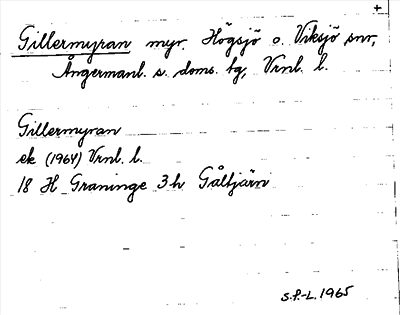 +
Gillermyran myr. Högsjö o. Viksjö snr,
Ångermanl. s. doms. tg, Vrnl. l.
Gillermyran
ek (1964) Vrnl. l.
18 H Graninge 3 h Gåltjärn
S.P.-L. 1965